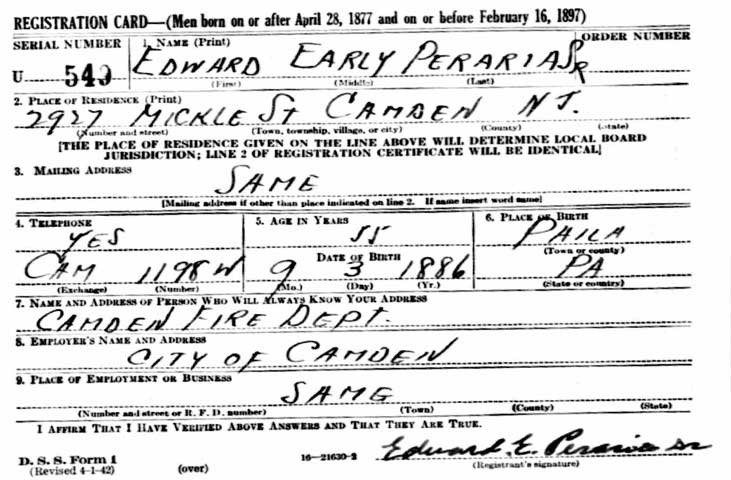 REGISTRATION CARD—(Men born on or after April 28, 1877 and on or before February 16, 1897)
SERIAL NUMBER 1. NAME (Print) ORDER NUMBER
U 549 EDWARD EARLY PERARIA SR
(First) (Middle) (Last)
2. PLACE OF RESIDENCE (Print)
2927 MICKLE ST CAMDEN NJ.
(Number and street) (Town, township, village, or city) (County) (State)
[THE PLACE OF RESIDENCE GIVEN ON THE LINE ABOVE WILL DETERMINE LOCAL BOARD
JURISDICTION; LINE 2 OF REGISTRATION CERTIFICATE WILL BE IDENTICAL]
3. MAILING ADDRESS
SAME
[Mailing address if other than place indicated on line 2. If same insert word same]
4. TELEPHONE 5. AGE IN YEARS 6. PLACE OF BIRTH
YES 55 PHILA
DATE OF BIRTH (Town or county)
CAM 1198 W 9 3 1886 PA
(Exchange) (Number) (Mo.) (Day) (Yr.) (State or country)
7. NAME AND ADDRESS OF PERSON WHO WILL ALWAYS KNOW YOUR ADDRESS
CAMDEN FIRE DEPT.
8. EMPLOYER'S NAME AND ADDRESS
CITY OF CAMDEN
9. PLACE OF EMPLOYMENT OR BUSINESS
SAME
(Number and street or R. F. D. number) (Town) (County) (State)
I AFFIRM THAT I HAVE VERIFIED ABOVE ANSWERS AND THAT THEY ARE TRUE.
D. S. S. Form 1 16—21630-2 Edward E. Peraria Sr
(Revised 4-1-42) (over) (Registrant's signature)